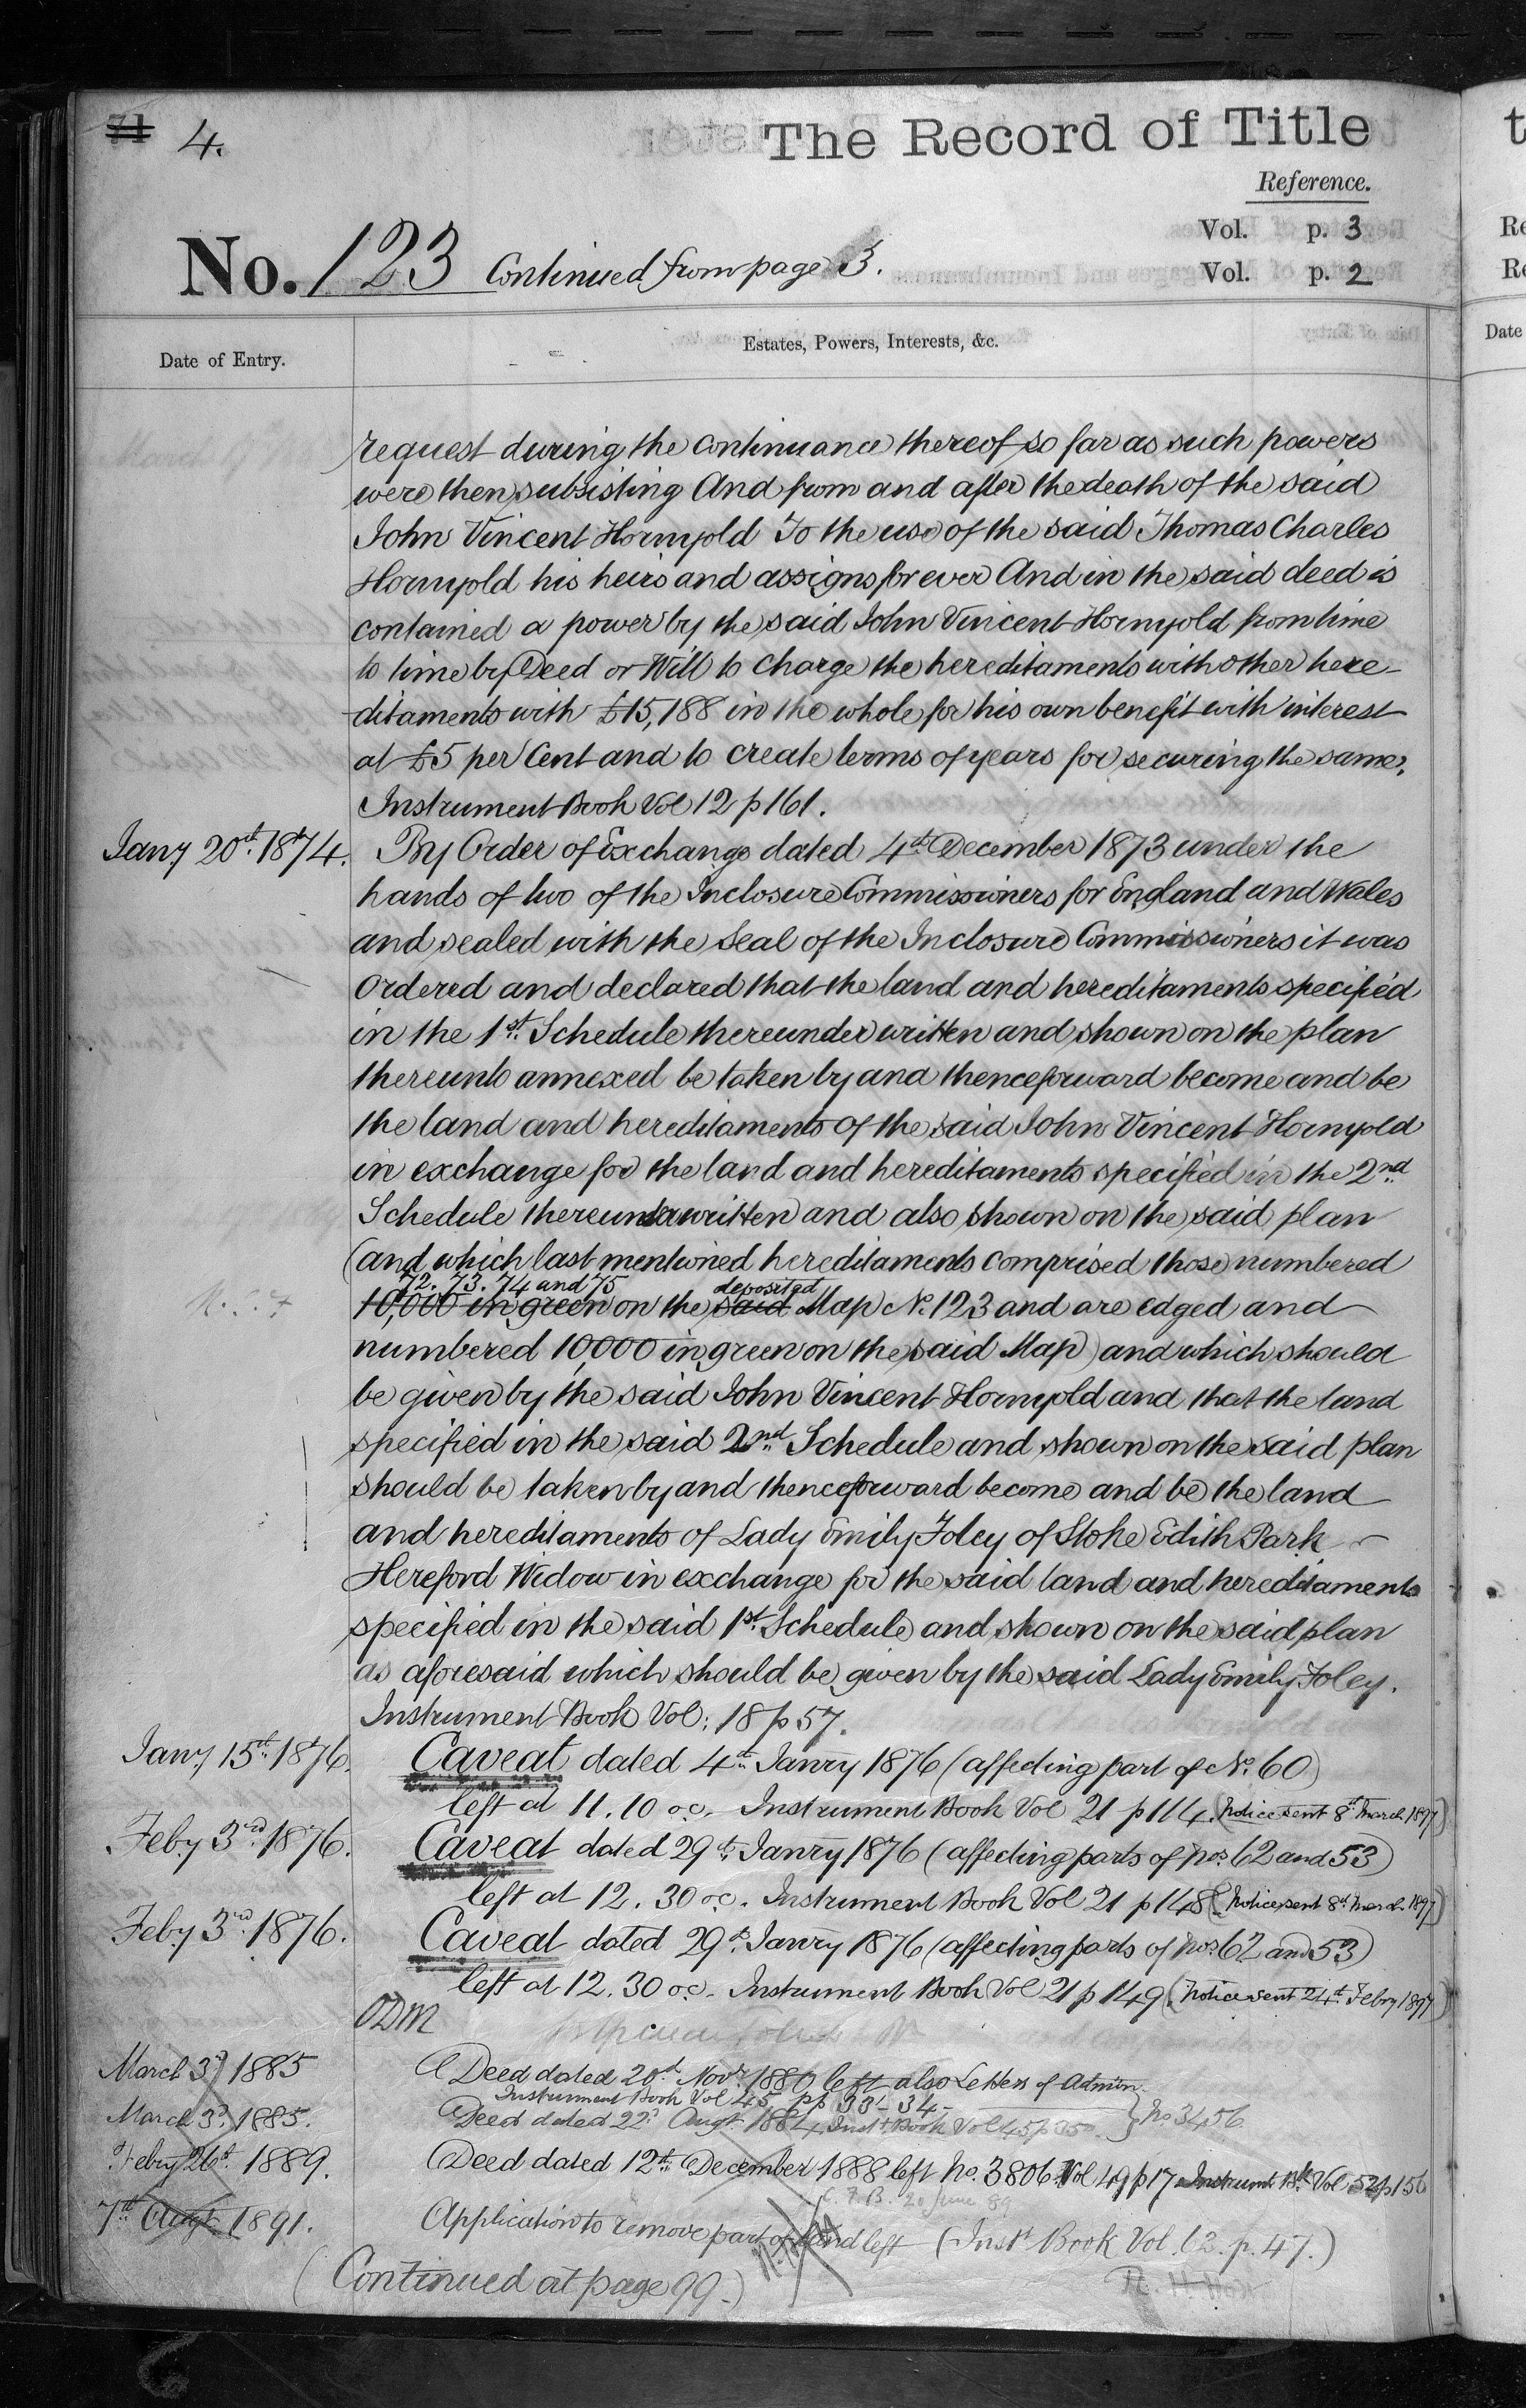 71 4.
The Record of Title
Reference.
Vol. p. 3
No. 123 Continued from page 3.
Vol. p. 2
Date of Entry.
Estates, Powers, Interests, &c.
request during the continuance thereof so far as such powers
were then subsisting And from and after the death of the said
John Vincent Hornyold To the use of the said Thomas Charles
Hornyold his heirs and assigns for ever And in the said deed is
contained a power by the said John Vincent Hornyold from time
to time by Deed or Will to charge the hereditaments with other here-
ditaments with £15,188 in the whole for his own benefit with interest
at £5 per Cent and to create terms of years for securing the same.
Instrument Book Vol 12 p 161.
Jany 20th. 1874. By Order of Exchange dated 4th December 1873 under the
hands of two of the Inclosure Commissioners for England and Wales
and sealed with the Seal of the Inclosure Commissioners it was
Ordered and declared that the land and hereditaments specified
in the 1st. Schedule thereunder written and shown on the plan
thereunto annexed be taken by and thenceforward become and be
the land and hereditaments of the said John Vincent Hornyold
in exchange for the land and hereditaments specified in the 2nd
Schedule thereunder written and also shown on the said plan
(and which last mentioned hereditaments comprised those numbered
72. 73. 74 and 75 deposited
10,000 in green on the said Map No. 123 and are edged and
numbered 10,000 in green on the said Map) and which should
be given by the said John Vincent Hornyold and that the land
specified in the said 2nd. Schedule and shown on the said plan
should be taken by and thenceforward become and be the land
and hereditaments of Lady Emily Foley of Stoke Edith Park
Hereford Widow in exchange for the said land and hereditaments
specified in the said 1st. Schedule and shown on the said plan
as aforesaid which should be given by the said Lady Emily Foley.
Instrument Book Vol: 18 p 57.
Jany 15th. 1876. Caveat dated 4th. Janry 1876 (affecting part of No. 60)
left at 11.10 o.c. Instrument Book Vol 21 p 114. (Notice sent 8th. March 1897)
Feby 3rd. 1876. Caveat dated 29th. Janry 1876 (affecting parts of Nos. 62 and 53)
left at 12.30 o.c. Instrument Book Vol 21 p 148 (Notice sent 8th. March 1897)
Feby 3rd. 1876. Caveat dated 29th. Janry 1876 (affecting parts of Nos. 62 and 53)
left at 12.30 o.c. Instrument Book Vol 21 p 149 (Notice sent 24th. Febry 1897)
ODM
March 3d. 1885 Deed dated 20th. Novr. 1880 left also Letters of Admin.
Instrument Book Vol 45 pp 33-34-
March 3d. 1885. Deed dated 22d. Augt. 1884 Inst. Book Vol 45 p 35. } No 3456.
Febry 26th. 1889. Deed dated 12th. December 1888 left No. 3806 Vol 49 p 17 Instrumt. Bk. Vol 52 p 156
20 June 89
7th Augt. 1891. Application to remove part of land left (Inst. Book Vol. 62. p. 47.)
(Continued at page 99.)